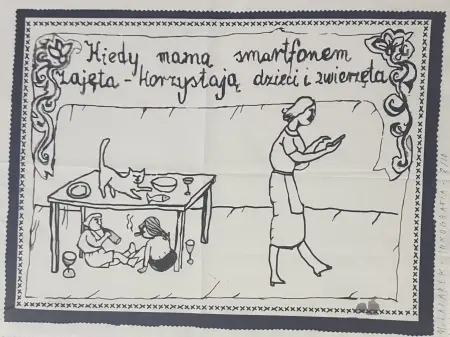 Kiedy mama smartfonem
zajęta - korzystają dzieci i zwierzęta